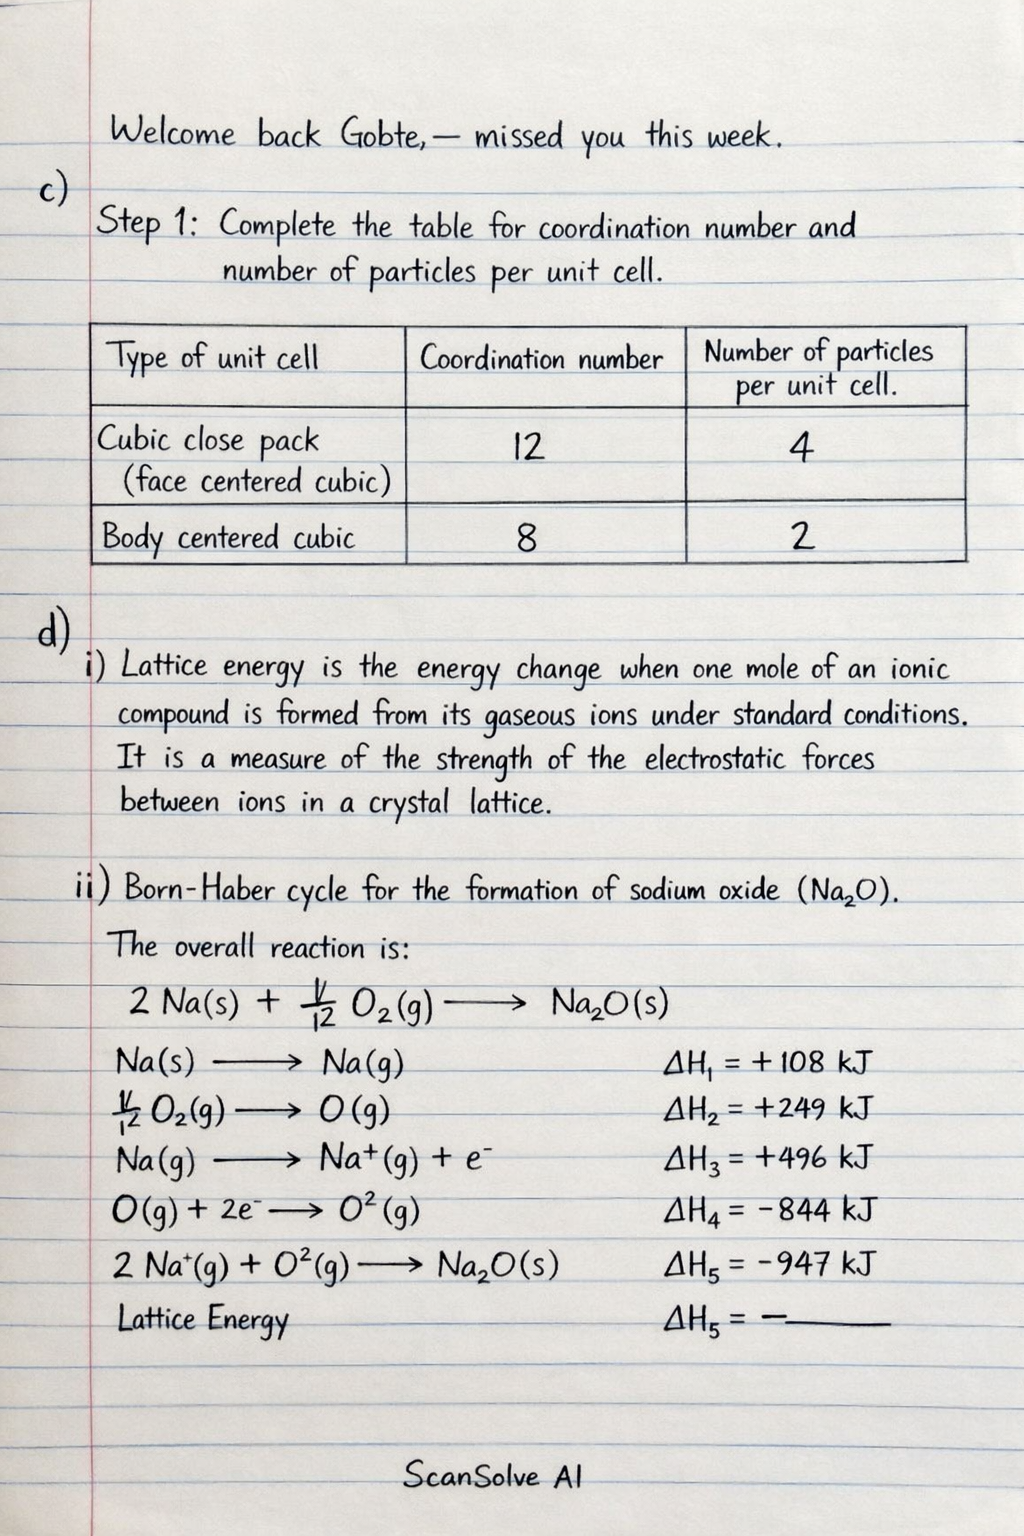 Welcome back Gobte,— missed you this week.
c)
Step 1: Complete the table for coordination number and
number of particles per unit cell.
Type of unit cell | Coordination number | Number of particles per unit cell.
Cubic close pack (face centered cubic) | 12 | 4
Body centered cubic | 8 | 2
d)
i) Lattice energy is the energy change when one mole of an ionic
compound is formed from its gaseous ions under standard conditions.
It is a measure of the strength of the electrostatic forces
between ions in a crystal lattice.
ii) Born-Haber cycle for the formation of sodium oxide (Na₂O).
The overall reaction is:
2 Na(s) + 1/12 O₂(g) ⟶ Na₂O(s)
Na(s) ⟶ Na(g) ΔH₁ = +108 kJ
1/12 O₂(g) ⟶ O(g) ΔH₂ = +249 kJ
Na(g) ⟶ Na⁺(g) + e⁻ ΔH₃ = +496 kJ
O(g) + 2e⁻ ⟶ O²(g) ΔH₄ = -844 kJ
2 Na⁺(g) + O²(g) ⟶ Na₂O(s) ΔH₅ = -947 kJ
Lattice Energy ΔH₅ = —______
ScanSolve AI